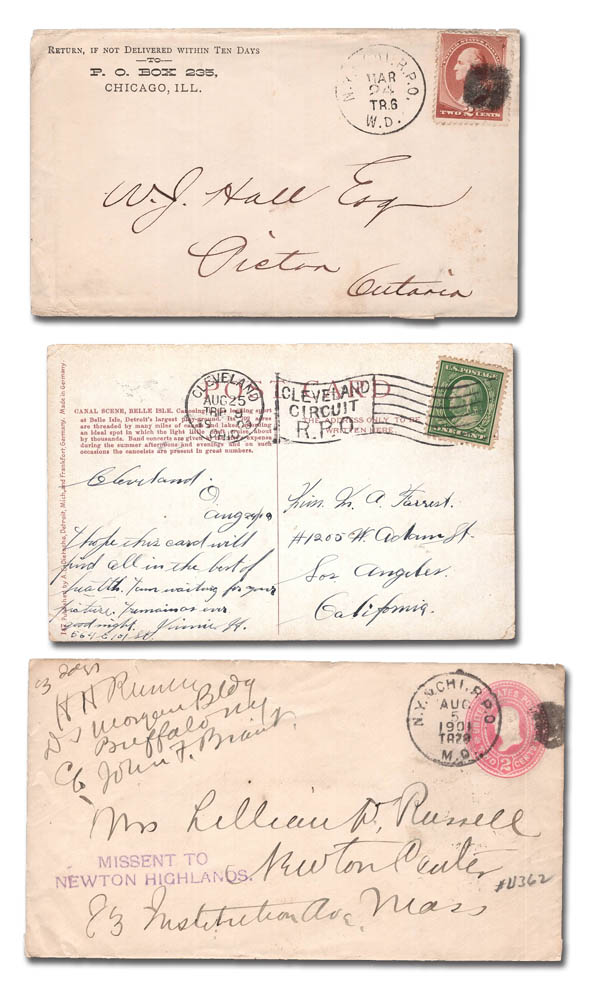 RETURN, IF NOT DELIVERED WITHIN TEN DAYS
—TO—
P. O. BOX 235,
CHICAGO, ILL.
N.Y. & CHI. R.P.O.
MAR
24
TR.6
W.D.
TWO 2 CENTS
W. J. Hall Esq
Picton
Ontario
POST CARD
CLEVELAND
AUG 25
TRIP
OHIO
CLEVELAND
CIRCUIT
R.P.O.
U.S. POSTAGE
ONE CENT
CANAL SCENE, BELLE ISLE.
at Belle Isle, Detroit's largest
are threaded by many miles of and lakes
an ideal spot in which the light little about
by thousands. Band concerts are given expense
during the summer afternoons and evenings and on such
occasions the canoeists are present in great numbers.
THE ADDRESS ONLY TO BE
WRITTEN HERE
147 Published by Detroit, Mich. and Frankfort, Germany. Made in Germany.
Cleveland.
O
I hope this card will
find all in the best of
health. I am waiting for your
picture. I remain as ever
good night. Minnie H.
Miss. M. A. Forrest.
#1205 W. Adams St.
Los Angeles.
California.
H H
Morgan Bldg
Buffalo NY
C/o John F.
N.Y. & CHI. R.P.O.
AUG
5
1901
TR29
M.D.
UNITED STATES POSTAGE
TWO 2 CENTS
Mrs Lillian W. Russell
MISSENT TO
Newton Center
NEWTON HIGHLANDS.
#U362
83 Institution Ave. Mass